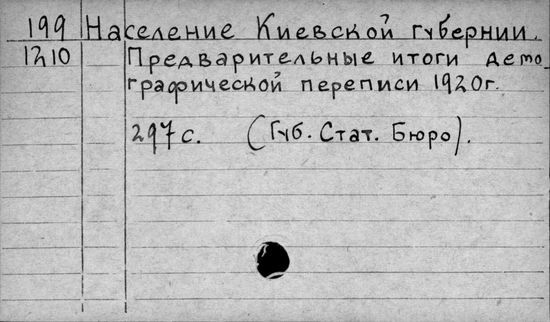 199 Население Киевской губернии.
1210 Предварительные итоги демо
графической переписи 1920г.
297 с. (Губ. Стат. Бюро).